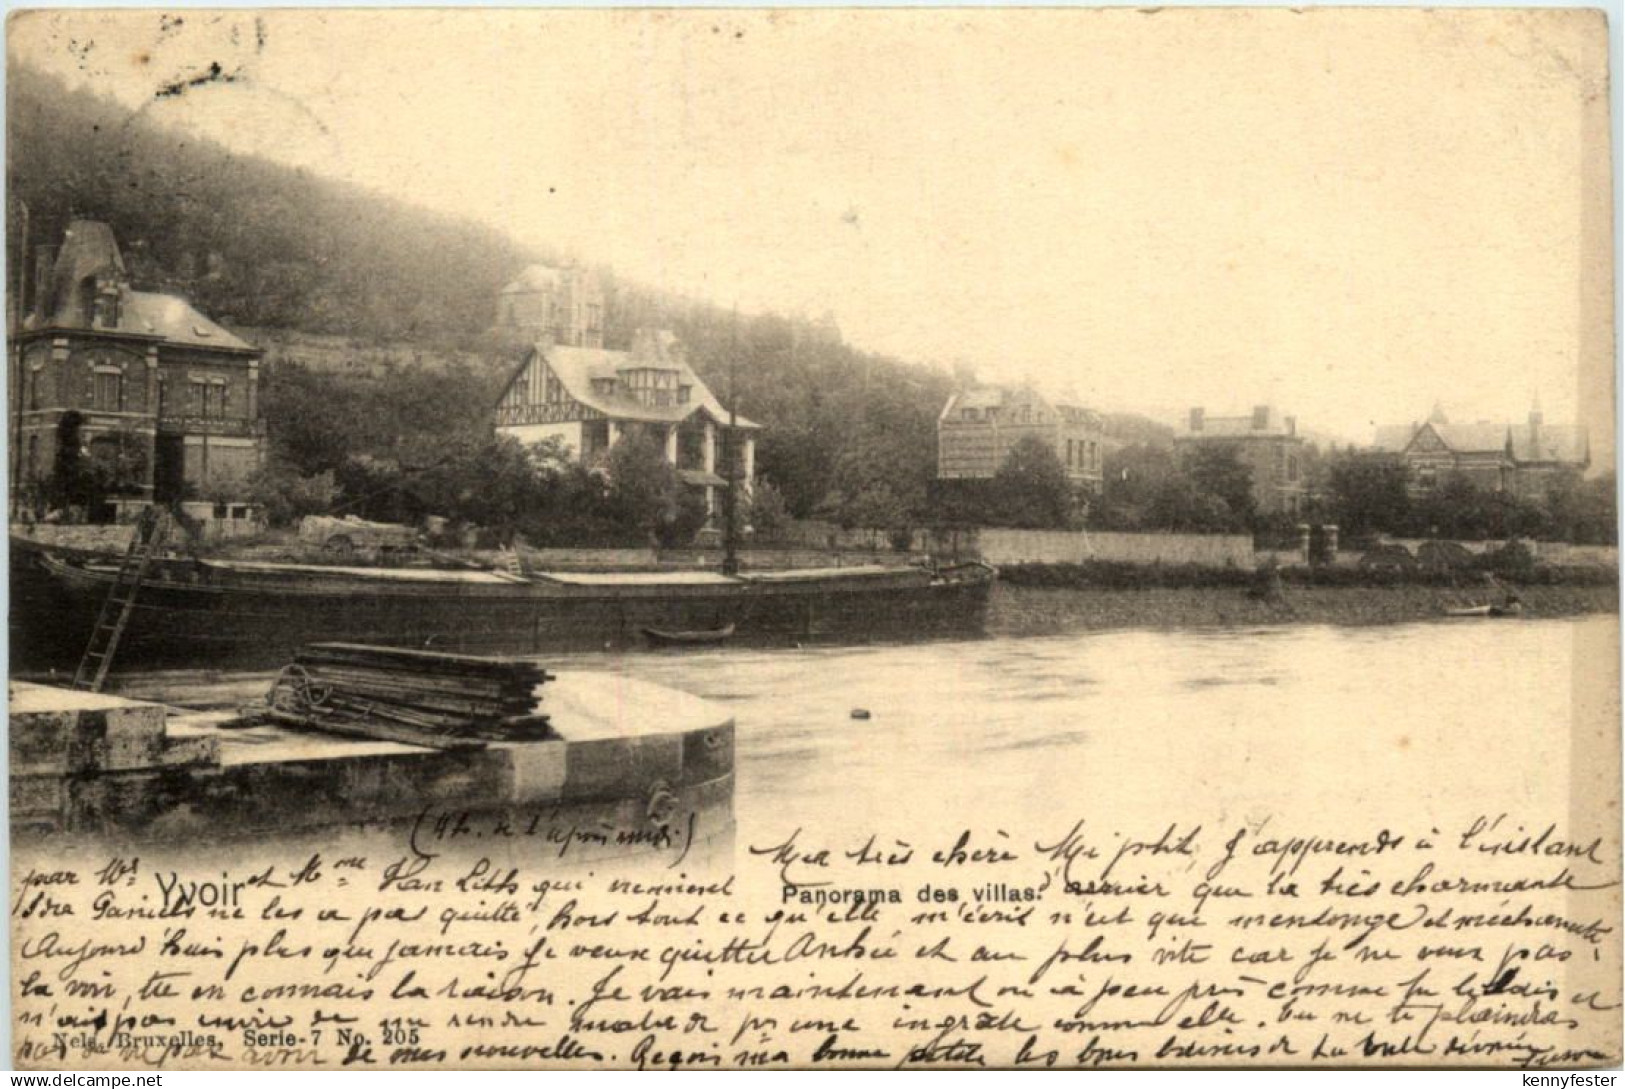 (4h. de l'après midi)
Ma très chère Mi ptit, J'apprends à l'instant
par Mr et Mme Han Lith qui viennent
Yvoir
Panorama des villas.
arriver que la très charmante
Ida Daniels ne les a pas quitté, hors tout ce qu'elle m'écrit n'est que mensonge et méchanceté
Aujourd'hui plus que jamais je veux quitter Anhée et au plus vite car je ne veux pas
la voir, tu en connais la raison. Je vais maintenant on à peu près comme tu le dois et
n'ai pas envie de me rendre malade pr une ingrate comme elle. Tu ne te plaindras
Nels, Bruxelles, Serie-7 No. 205
pas de ne pas avoir de mes nouvelles. Reçois ma bonne petite les bons baisers de ta toute dévouée
kennyfester